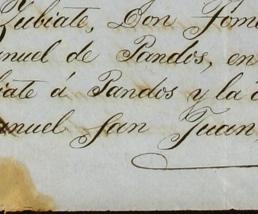 Zubiate, Don Tom
anuel de Pandos, en
iate á Pandos y la
anuel San Juan